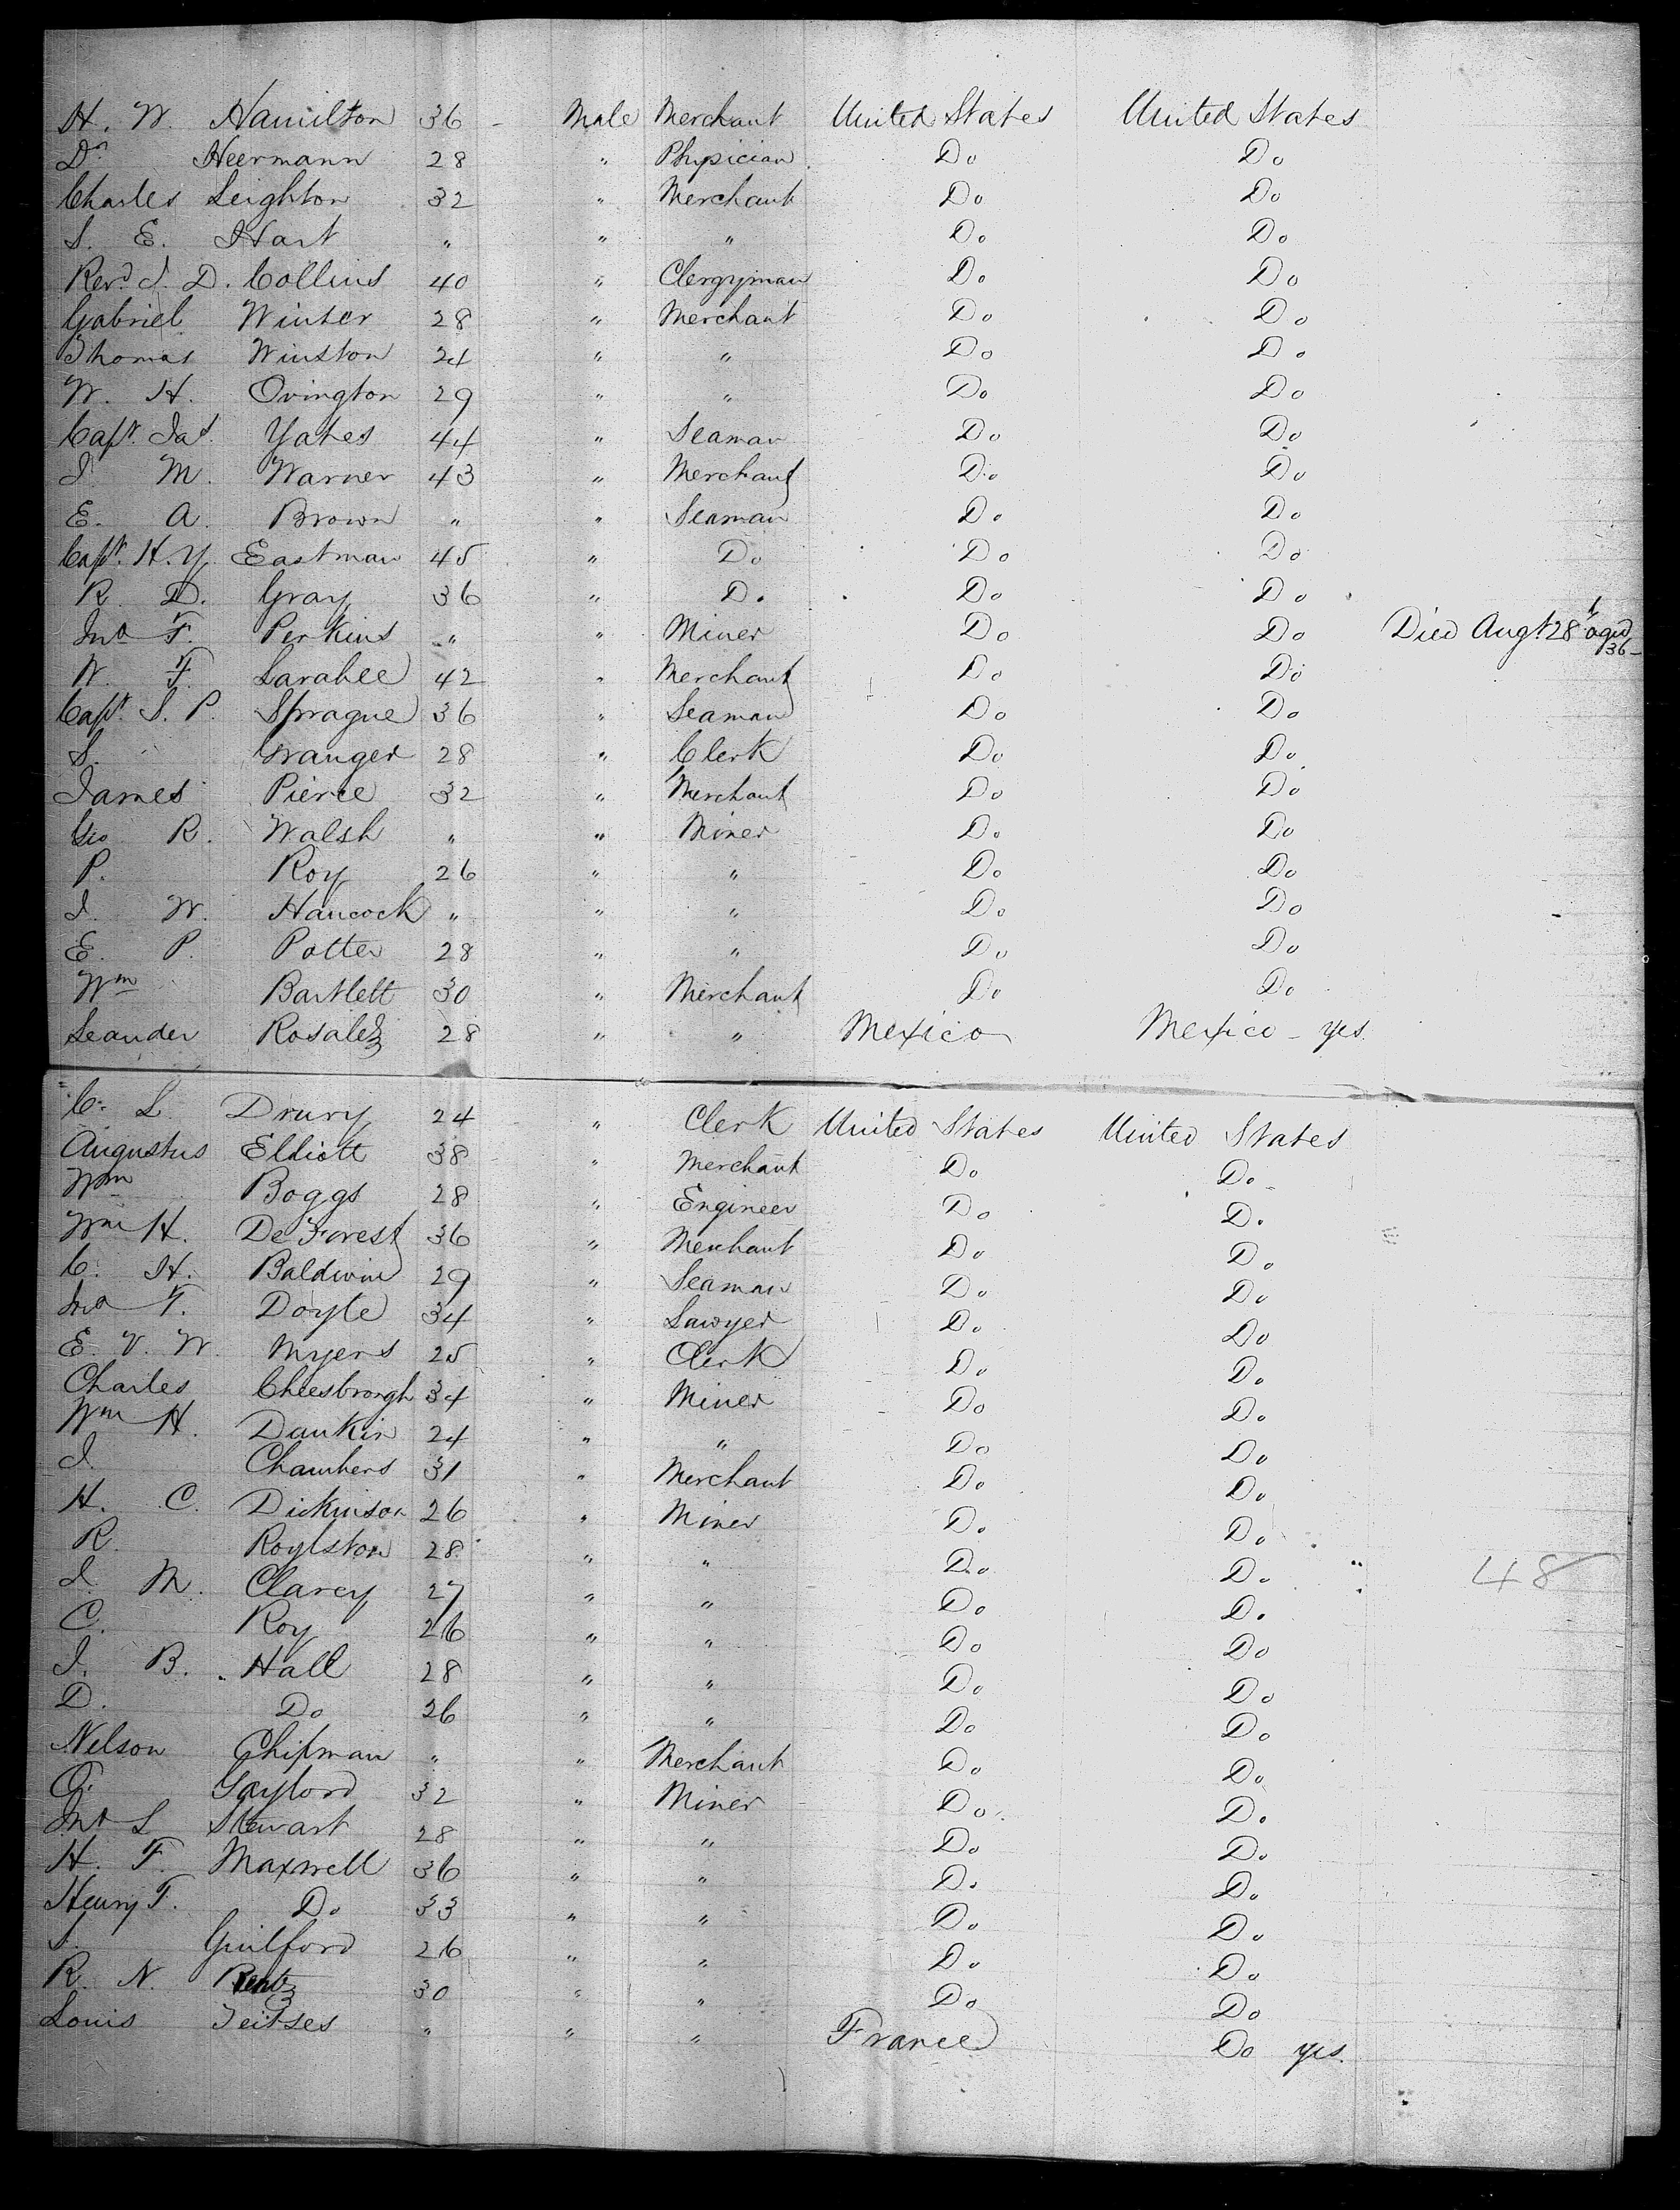 H. W. Hamilton 36 - Male Merchant United States United States
Dr Heermann 28 " Physician Do Do
Charles Leighton 32 " Merchant Do Do
S. E. Hart " " " Do Do
Revd J. D. Collins 40 " Clergyman Do Do
Gabriel Winter 28 " Merchant Do Do
Thomas Winston 24 " " Do Do
W. H. Ovington 29 " " Do Do
Capt. Jas. Yates 44 " Seaman Do Do
J. M. Warner 43 " Merchant Do Do
E. A. Brown " " Seaman Do Do
Capt. H. Y. Eastman 45 " Do Do Do
R. D. Gray 36 " Do Do Do
Jno F. Perkins " " Miner Do Do Died Augt 28t aged 36-
W. F. Larabee 42 " Merchant Do Do
Capt. S. P. Sprague 36 " Seaman Do Do
S. Granger 28 " Clerk Do Do
James Pierce 32 " Merchant Do Do
Geo R. Walsh " " Miner Do Do
P. Roy 26 " " Do Do
J. W. Hancock " " " Do Do
E. P. Potter 28 " " Do Do
Wm Bartlett 30 " Merchant Do Do
Leander Rosalez 28 " " Mexico Mexico - yes.
C. L Drury 24 " Clerk United States United States
Augustus Elliott 38 " Merchant Do Do
Wm Boggs 28 " Engineer Do Do
Wm H. De Forest 36 " Merchant Do Do
C. H. Baldwin 29 " Seaman Do Do
Jno T. Doyle 34 " Lawyer Do Do
E. V. W. Myers 25 " Clerk Do Do
Charles Cheesbrough 34 " Miner Do Do
Wm H. Dankin 24 " " Do Do
J. Chambers 31 " Merchant Do Do
H. C. Dickinson 26 " Miner Do Do
R. Roylston 28 " " Do Do
J. M. Clarcy 27 " " Do Do 48
C. Roy 26 " " Do Do
J. B. Hall 28 " " Do Do
D. Do 26 " " Do Do
Nelson Chipman " " Merchant Do Do
G. Gaylord 32 " Miner Do Do
Jno L Stewart 28 " " Do Do
H. F. Maxwell 36 " " Do Do
Henry F. Do 33 " " Do Do
S. Guilford 26 " " Do Do
R. N. 30 " " Do Do
Louis " " " France Do yes.